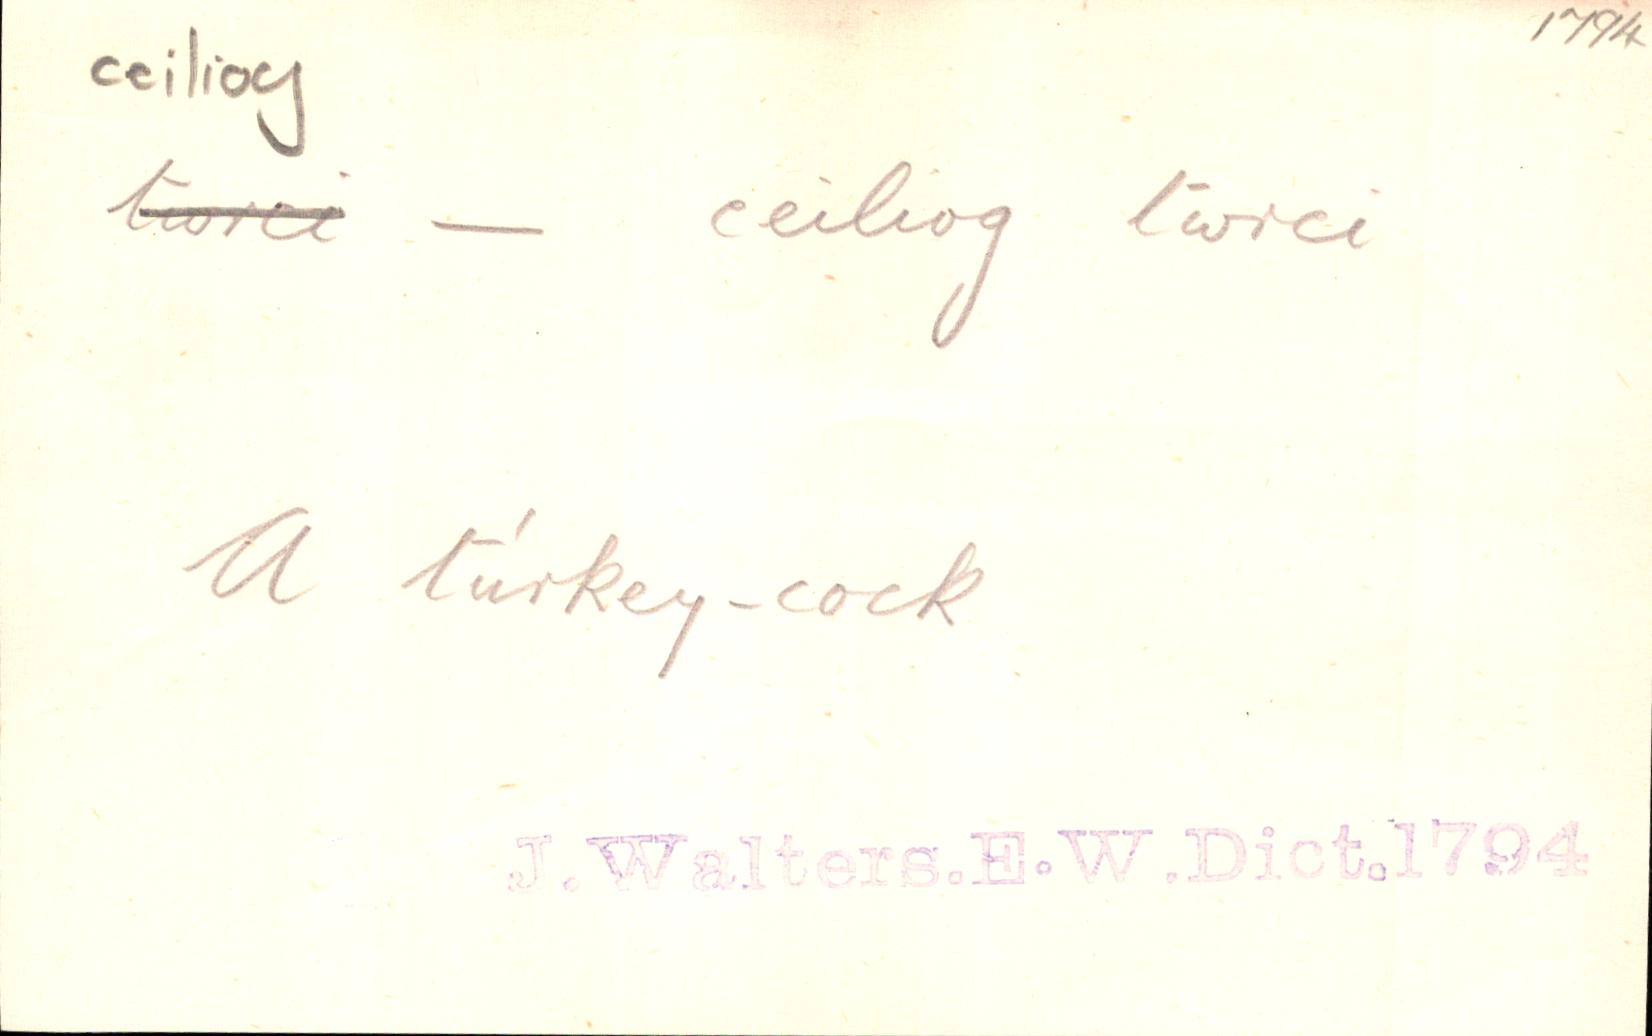 1794
ceiliog
twrci — ceiliog twrci
A túrkey-cock
J. Walters. E. W. Dict. 1794